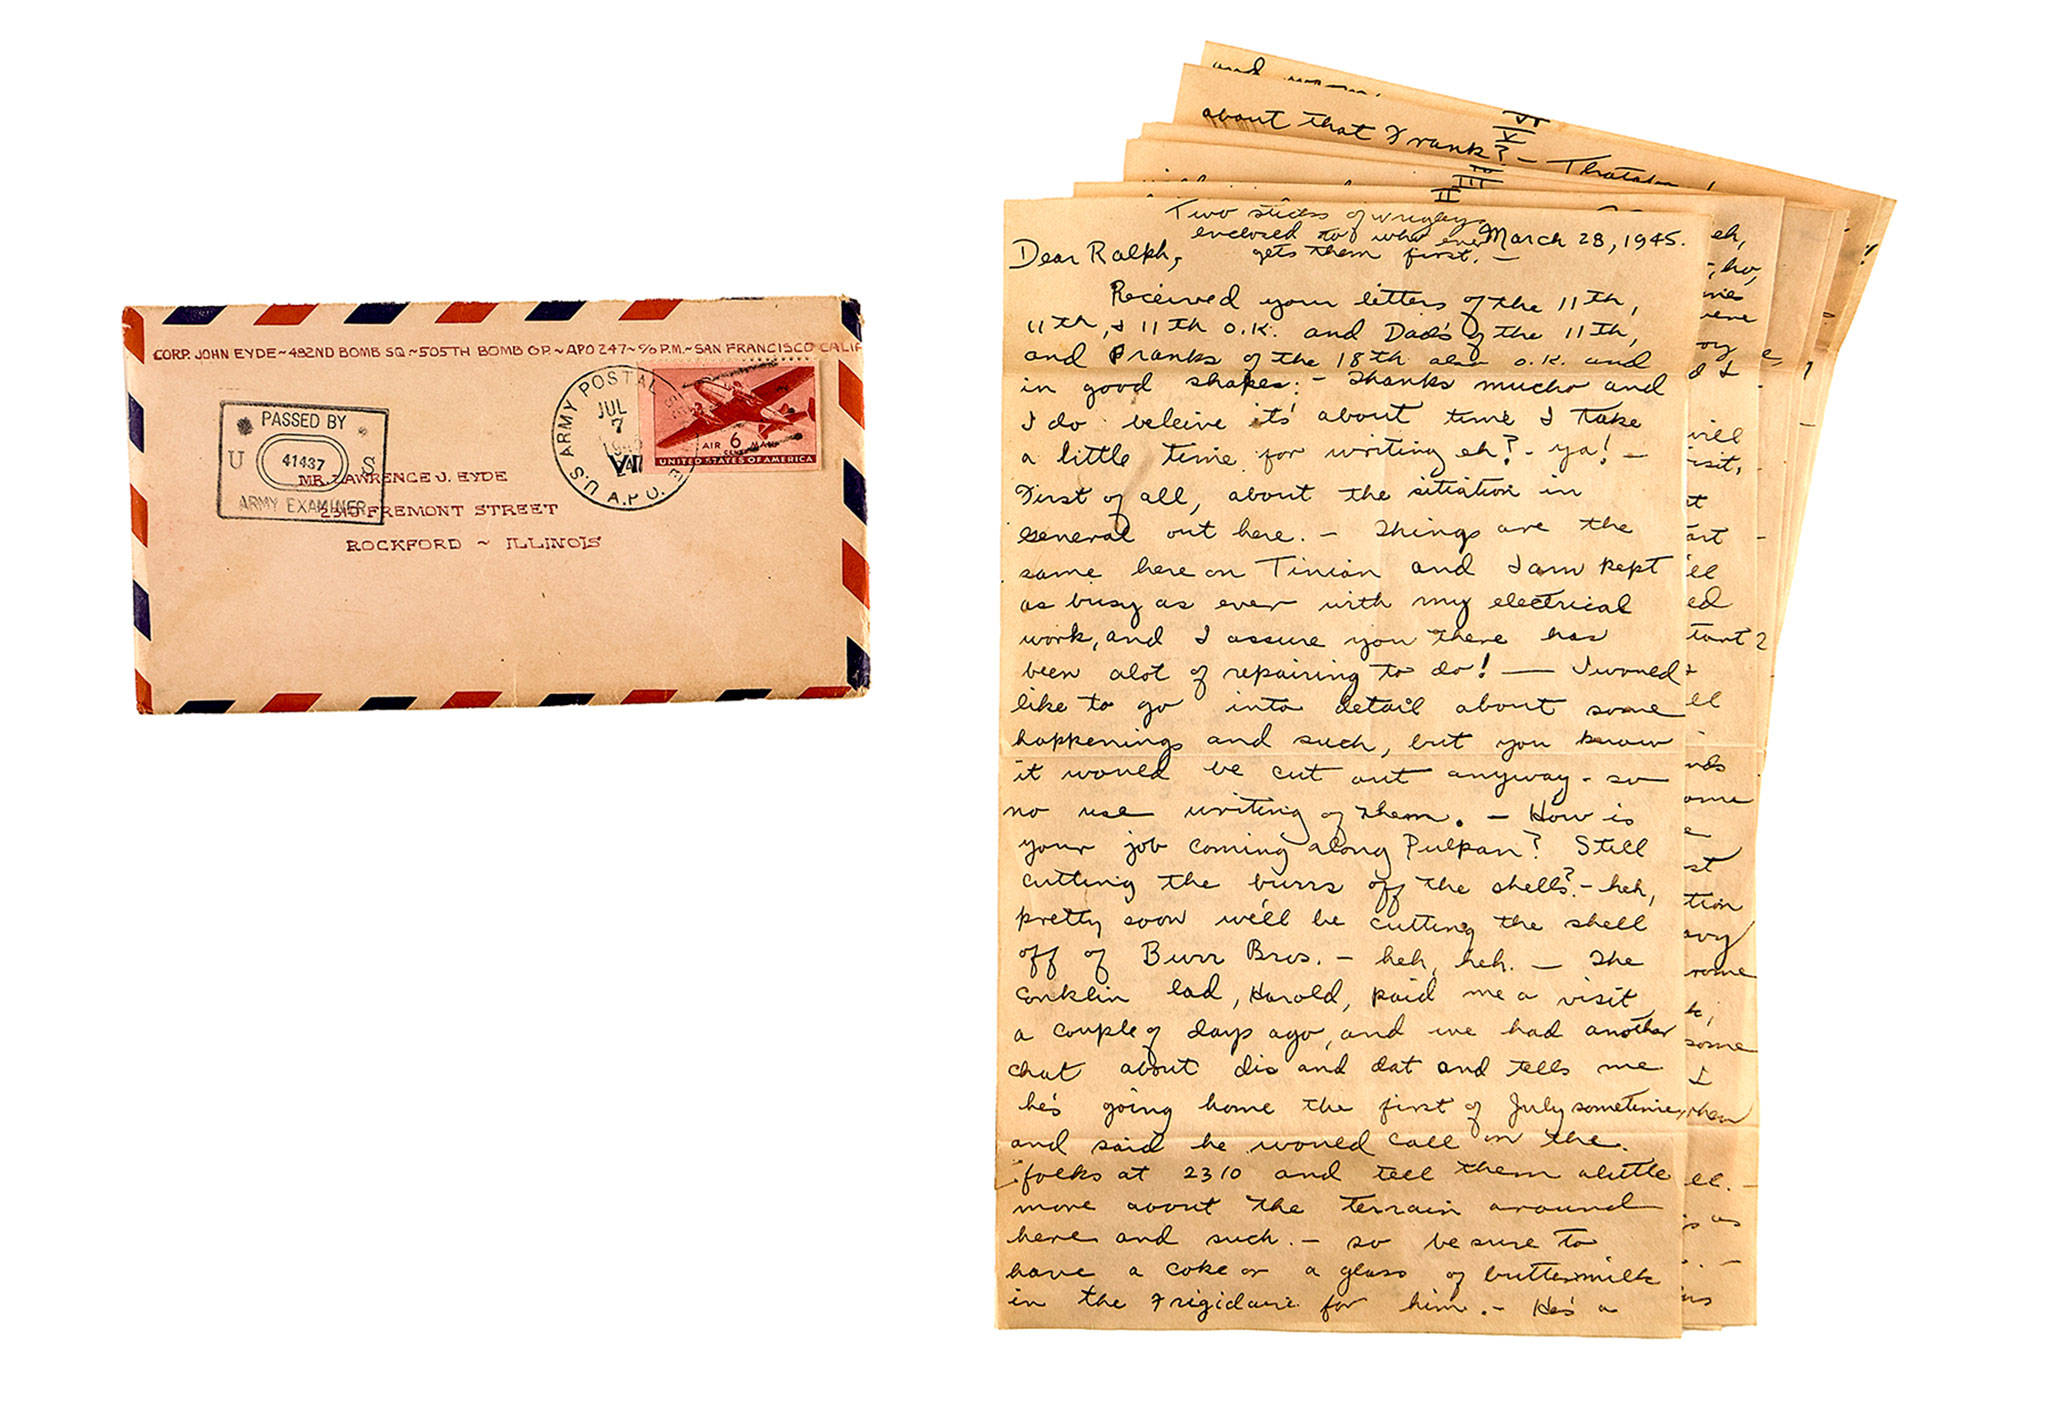 CORP. JOHN EYDE ~ 482ND BOMB SQ ~ 505TH BOMB GP. ~ APO 247 ~ c/o P.M. ~ SAN FRANCISCO CALIF
PASSED BY
U 41437 S
ARMY EXAMINER
U.S. ARMY POSTAL
A.P.O.
JUL
7
247
AIR 6 MAIL
CENTS
UNITED STATES OF AMERICA
MR. LAWRENCE J. EYDE
2310 FREMONT STREET
ROCKFORD ~ ILLINOIS
and
VI
V
about that Frank? -
III
II
Two sticks of wrigleys
enclosed to who ever
gets them first. -
March 28, 1945.
Dear Ralph,
Received your letters of the 11th,
11th, & 11th O.K. and Dad's of the 11th,
and Franks of the 18th also O.K. and
in good shape. - Thanks mucho and
I do beleive its about time I take
a little time for writing eh? - ya! -
First of all, about the sitiation in
general out here. - Things are the
same here on Tinian and I am kept
as busy as ever with my electrical
work, and I assure you there has
been alot of repairing to do! — I would
like to go into detail about some
happenings and such, but you know
it would be cut out anyway - so
no use writing of them. - How is
your job coming along Pulpan? Still
cutting the burrs off the shells? - heh,
pretty soon we'll be cutting the shell
off of Burr Bros. - heh, heh. - The
Conklin lad, Harold, paid me a visit
a couple of days ago, and we had another
chat about dis and dat and tells me
he's going home the first of July sometime
and said he would call on the
folks at 2310 and tell them alittle
more about the terrain around
here and such. - so be sure to
have a coke or a glass of buttermilk
in the Frigidaire for him. - He's a
eh,
ho,
will
visit,
st
art
ell
ed
tant 2
ell
nds
ome
st
tion
avy
rome
some
I
when
ell. -
as